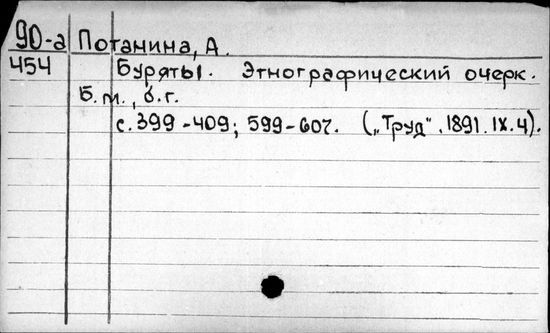 90-а Потанина, А.
454 Буряты. Этнографический очерк.
Б.м., б.г.
с. 399-409; 599-607. („Труд", 1891. IX. 4).